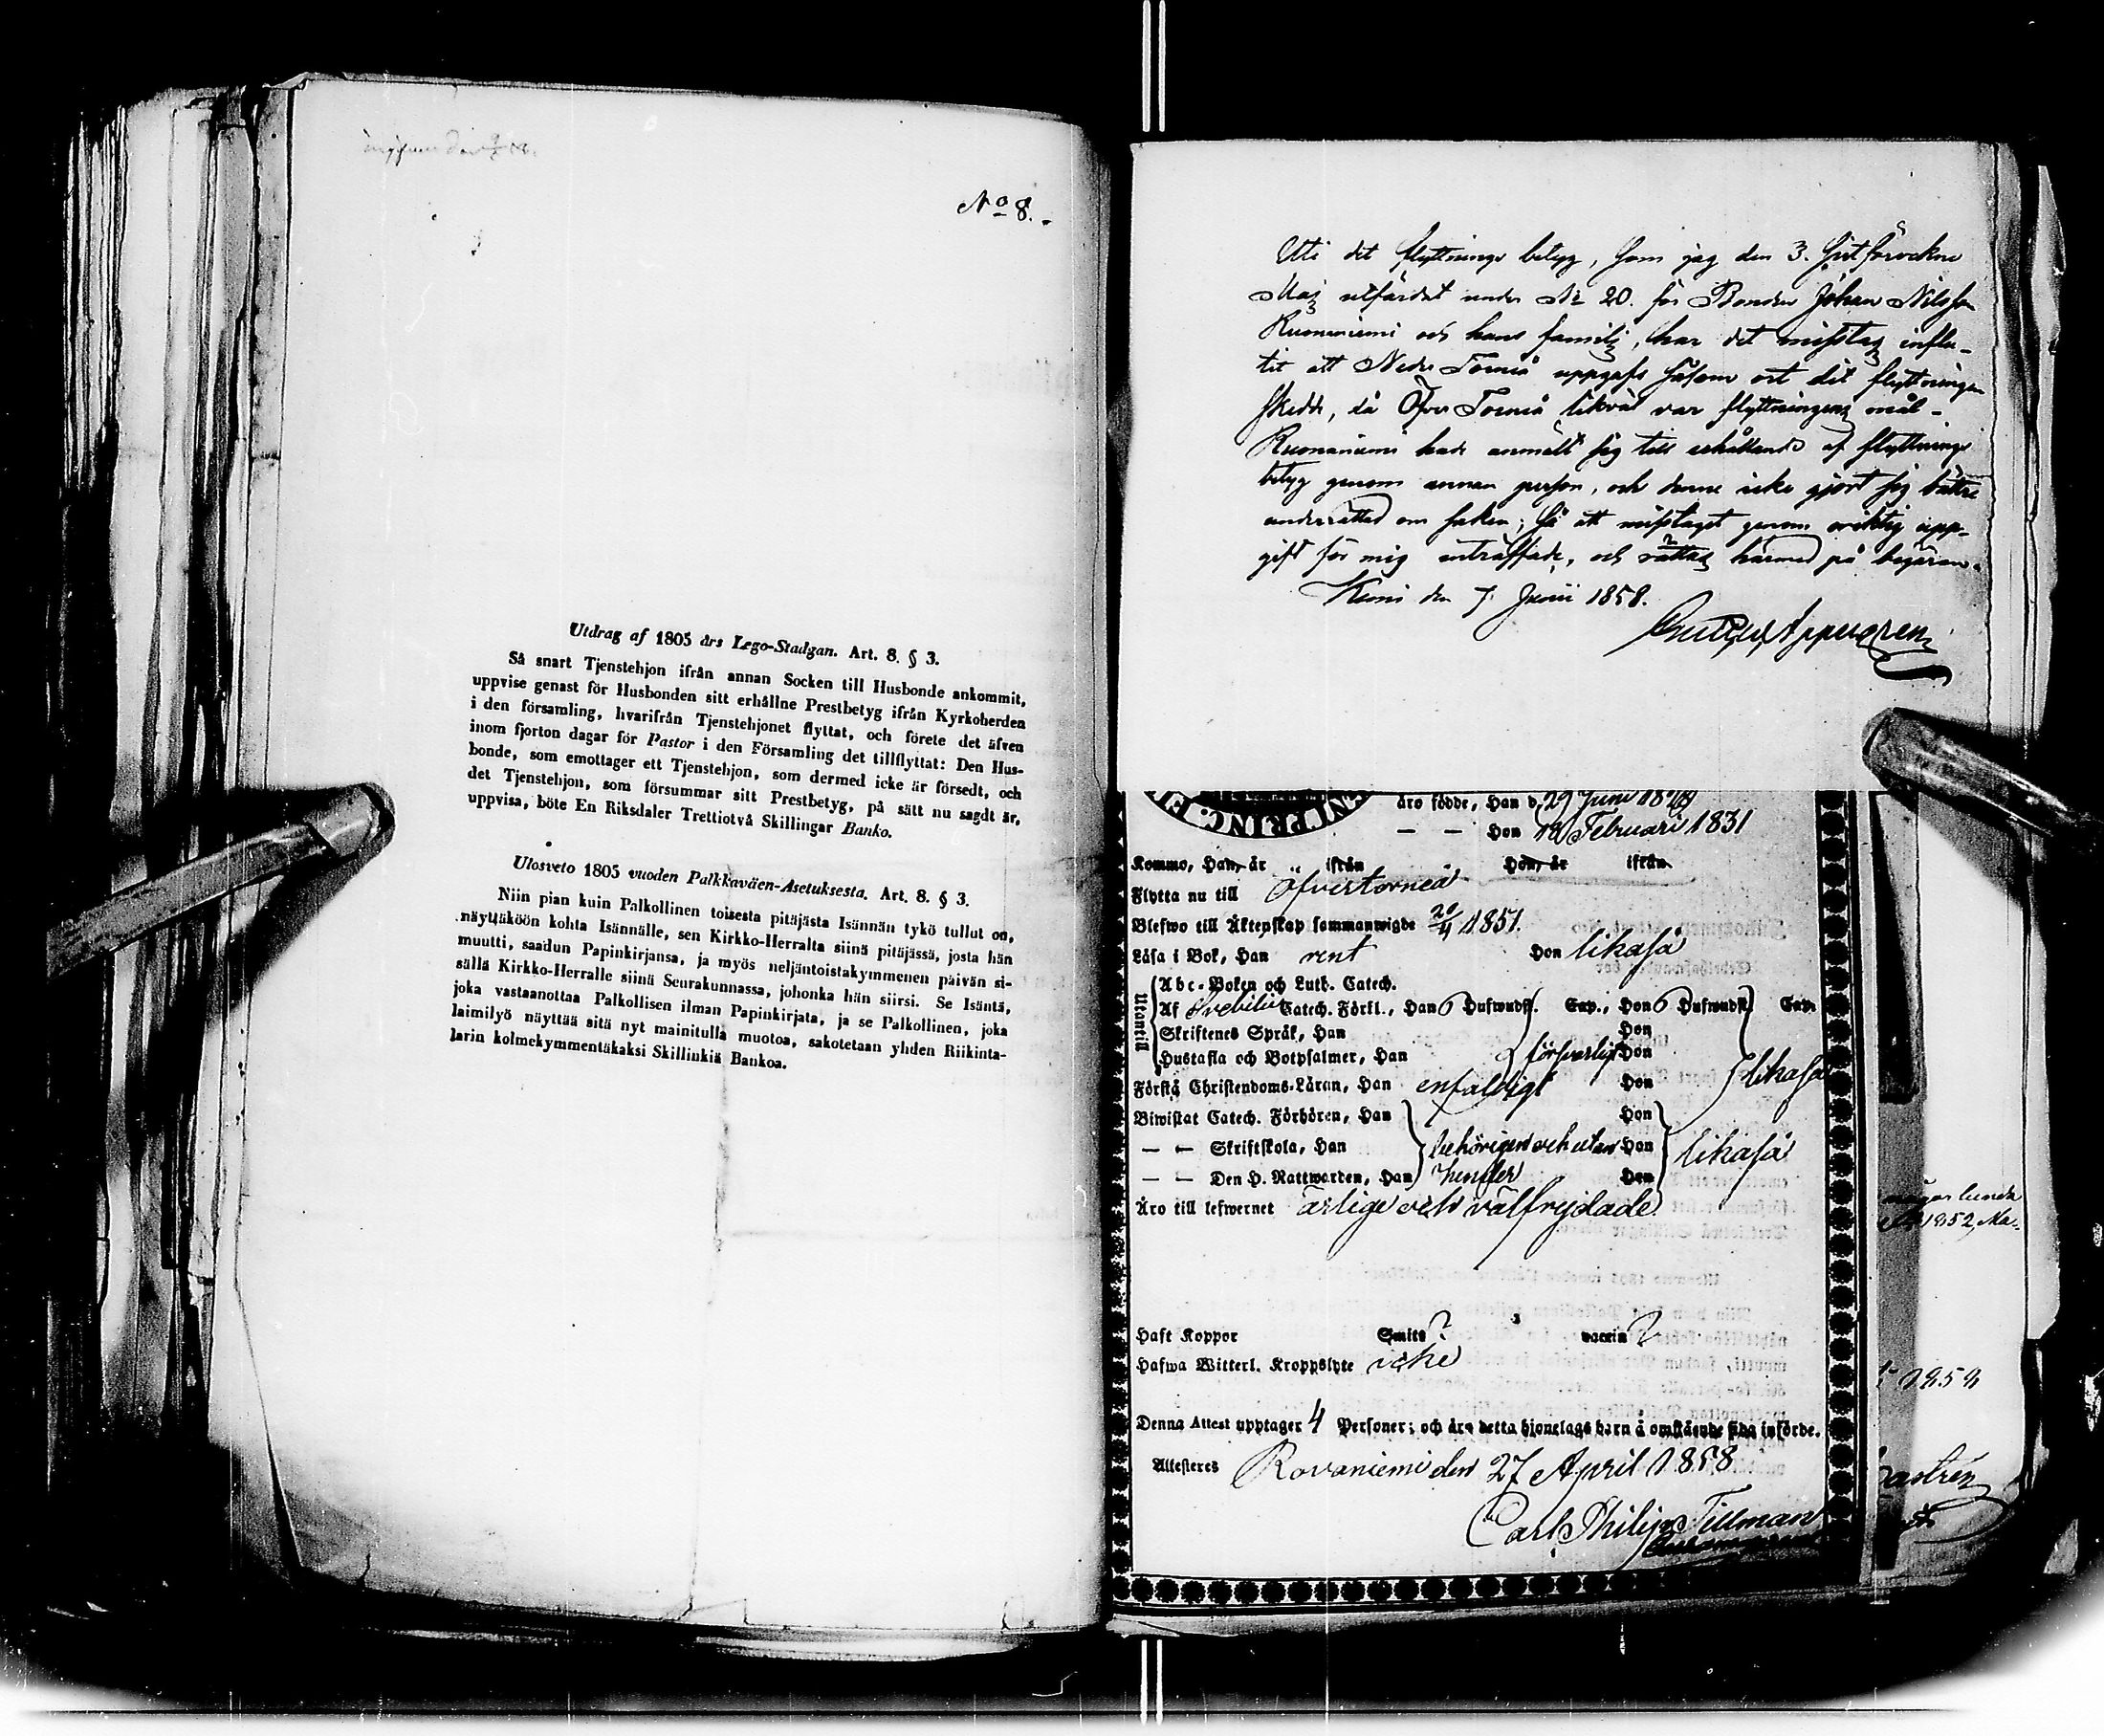 No 8.
Utdrag af 1805 års Lego-Stadgan. Art. 8. § 3.
Så snart Tjenstehjon ifrån annan Socken till Husbonde ankommit,
uppvise genast för Husbonden sitt erhållne Prestbetyg ifrån Kyrkoherden
i den församling, hvarifrån Tjenstehjonet flyttat, och förete det äfven
inom fjorton dagar för Pastor i den Församling det tillflyttat: Den Hus-
bonde, som emottager ett Tjenstehjon, som dermed icke är försedt, och
det Tjenstehjon, som försummar sitt Prestbetyg, på sätt nu sagdt är,
uppvisa, böte En Riksdaler Trettiotvå Skillingar Banko.
Ulosveto 1805 vuoden Palkkaväen-Asetuksesta. Art. 8. § 3.
Niin pian kuin Palkollinen toisesta pitäjästa Isännän tykö tullut on,
näyttäköön kohta Isännälle, sen Kirkko-Herralta siinä pitäjässä, josta hän
muutti, saadun Papinkirjansa, ja myös neljäntoistakymmenen päivän si-
sällä Kirkko-Herralle siinä Seurakunnassa, johonka hän siirsi. Se Isäntä,
joka vastaanottaa Palkollisen ilman Papinkirjata, ja se Palkollinen, joka
laimilyö näyttää sitä nyt mainitulla muotoa, sakotetaan yhden Riikinta-
larin kolmekymmentäkaksi Skillinkiä Bankoa.
Uti det flyttnings betyg, som jag den 3. sistförvekne
Maj utfärdat under No 20. för Bonden Johan Nilsson
Ruonaniemi och hans familj, har det misstag influ-
tit att Neder Torneå uppgafs såsom ort dit flyttningen
skedde, då Öfver Torneå likväl var flyttningens mål -
Ruonaniemi hade anmält sig till erhållande af flyttnings
betyg genom annan person, och denne icke gjort sig bättre
underrättad om saken; så att misstaget genom oriktig upp-
gift för mig inträffade, och rättas härmed på begäran.
Kemi den 7. Junii 1858.
äro födde, Han d. 29 Juni
— — Hon 18 Februari 1831
Kommo, Han, är ifrån Hon, är ifrån
Flytta nu till Öfvertorneå
Blefwo till Äktenskap sammanwigde 20/4 1851.
Läsa i Bok, Han rent Hon likaså
Utantill
Abc-Boken och Luth. Catech.
Af Svebilii Catech. Förkl., Han 6 Hufwudst. Cap., Hon 6 Hufwudst. Cap.
Skriftenes Språk, Han Hon
Hustafla och Botpsalmer, Han försvarligt Hon
Förstå Christendoms-Läran, Han enfaldigt Hon likaså
Biwistat Catech. Förhören, Han Hon
— — Skriftskola, Han behörigen och utan Hon likaså
— — Den H. Nattwarden, Han hinder Hon
Äro till lefwernet ärlige och välfrejdade
Haft Koppor Smitt ? vaccin ?
Hafwa Witterl. Kroppslyte icke
Denna Attest upptager 4 Personer; och äro detta hjonelags barn å omstående sida införde.
Attesteres Rovaniemi den 27 April 1858
Carl Philip Tillman
1852, Ma-